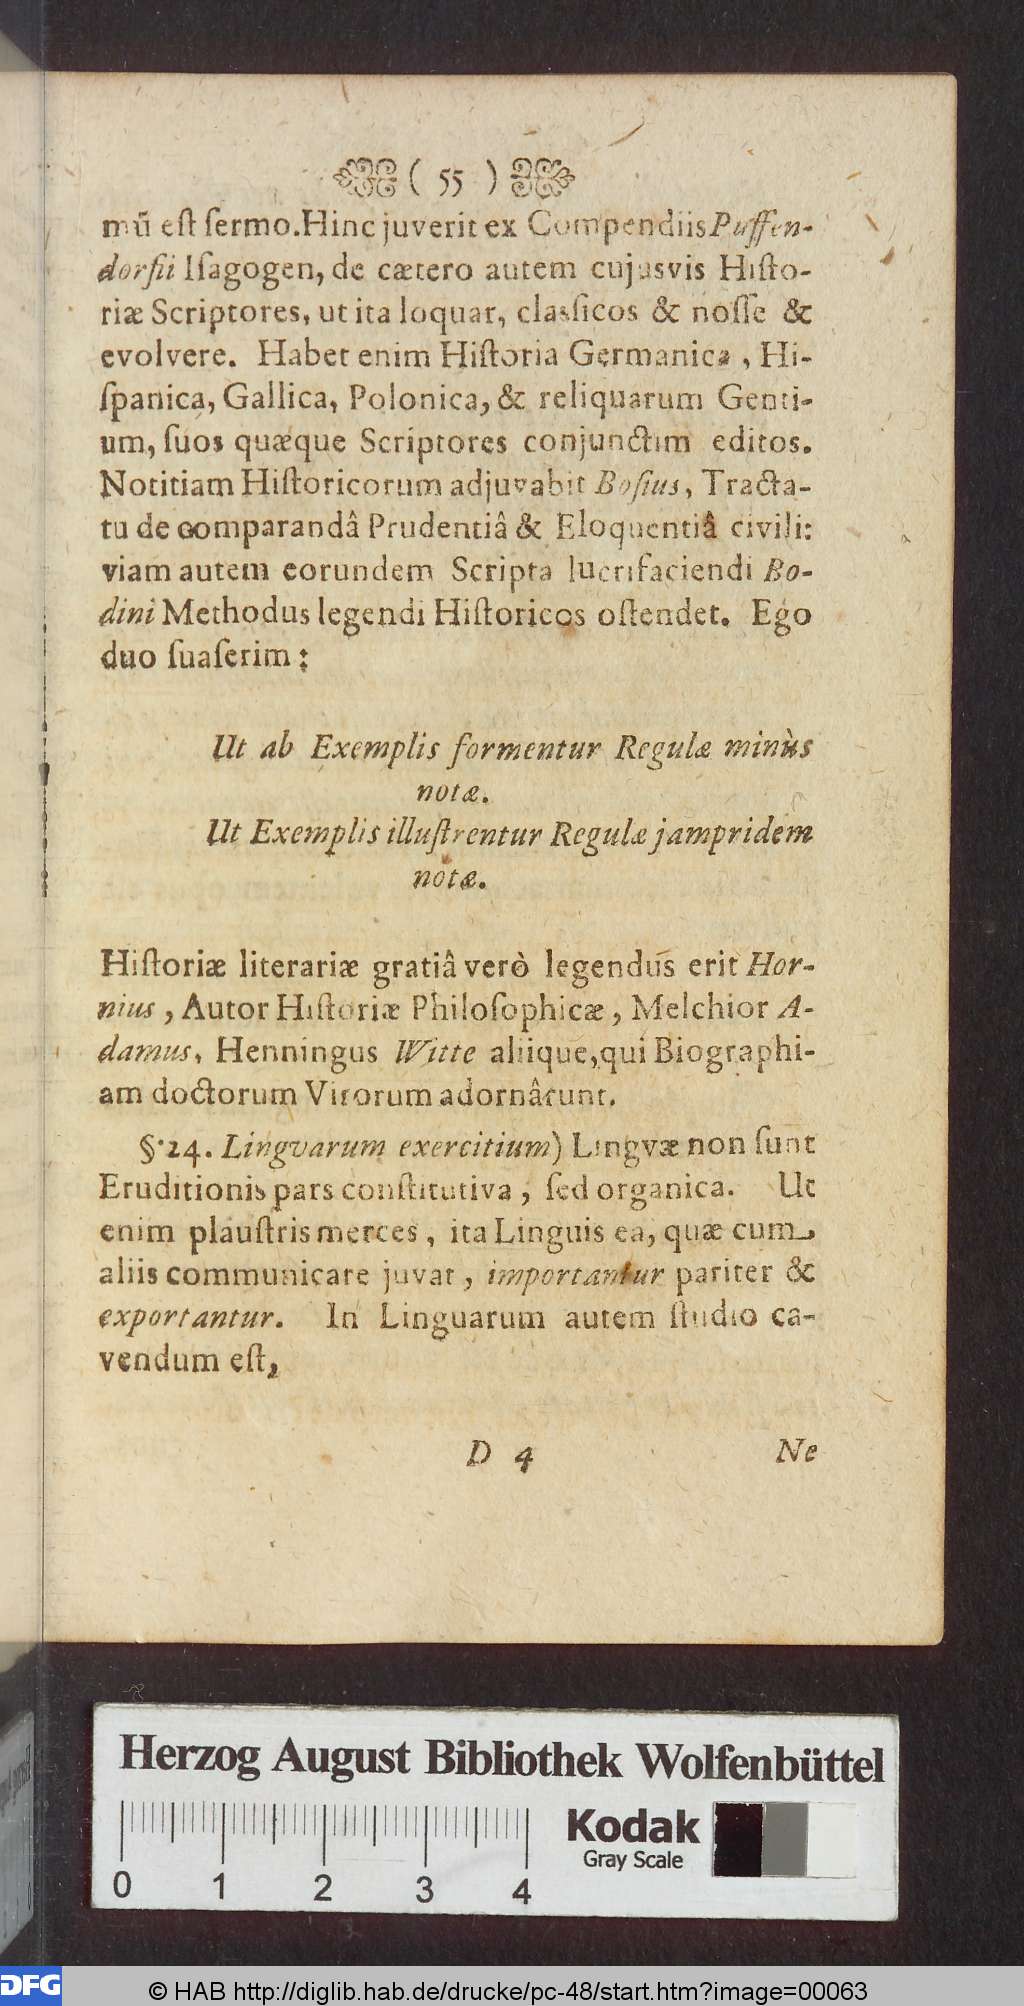 ( 55 )
mū eſt ſermo. Hinc juverit ex Compendiis Puffen-
dorfii Iſagogen, de cætero autem cujusvis Hiſto-
riæ Scriptores, ut ita loquar, claſſicos & noſſe &
evolvere. Habet enim Hiſtoria Germanica, Hi-
ſpanica, Gallica, Polonica, & reliquarum Genti-
um, ſuos quæque Scriptores conjunctim editos.
Notitiam Hiſtoricorum adjuvabit Boſius, Tracta-
tu de comparandâ Prudentiâ & Eloquentiâ civili:
viam autem eorundem Scripta lucrifaciendi Bo-
dini Methodus legendi Hiſtoricos oſtendet. Ego
duo ſuaſerim:
Ut ab Exemplis formentur Regulæ minùs
notæ.
Ut Exemplis illuſtrentur Regulæ jampridem
notæ.
Hiſtoriæ literariæ gratiâ verò legendus erit Hor-
nius, Autor Hiſtoriæ Philoſophicæ, Melchior A-
damus, Henningus Witte aliique, qui Biographi-
am doctorum Virorum adornârunt.
§. 24. Lingvarum exercitium) Lingvæ non ſunt
Eruditionis pars conſtitutiva, ſed organica. Ut
enim plauſtris merces, ita Linguis ea, quæ cum
aliis communicare juvat, importantur pariter &
exportantur. In Linguarum autem ſtudio ca-
vendum eſt,
D 4 Ne
Herzog August Bibliothek Wolfenbüttel
Kodak
Gray Scale
0 1 2 3 4
DFG © HAB http://diglib.hab.de/drucke/pc-48/start.htm?image=00063